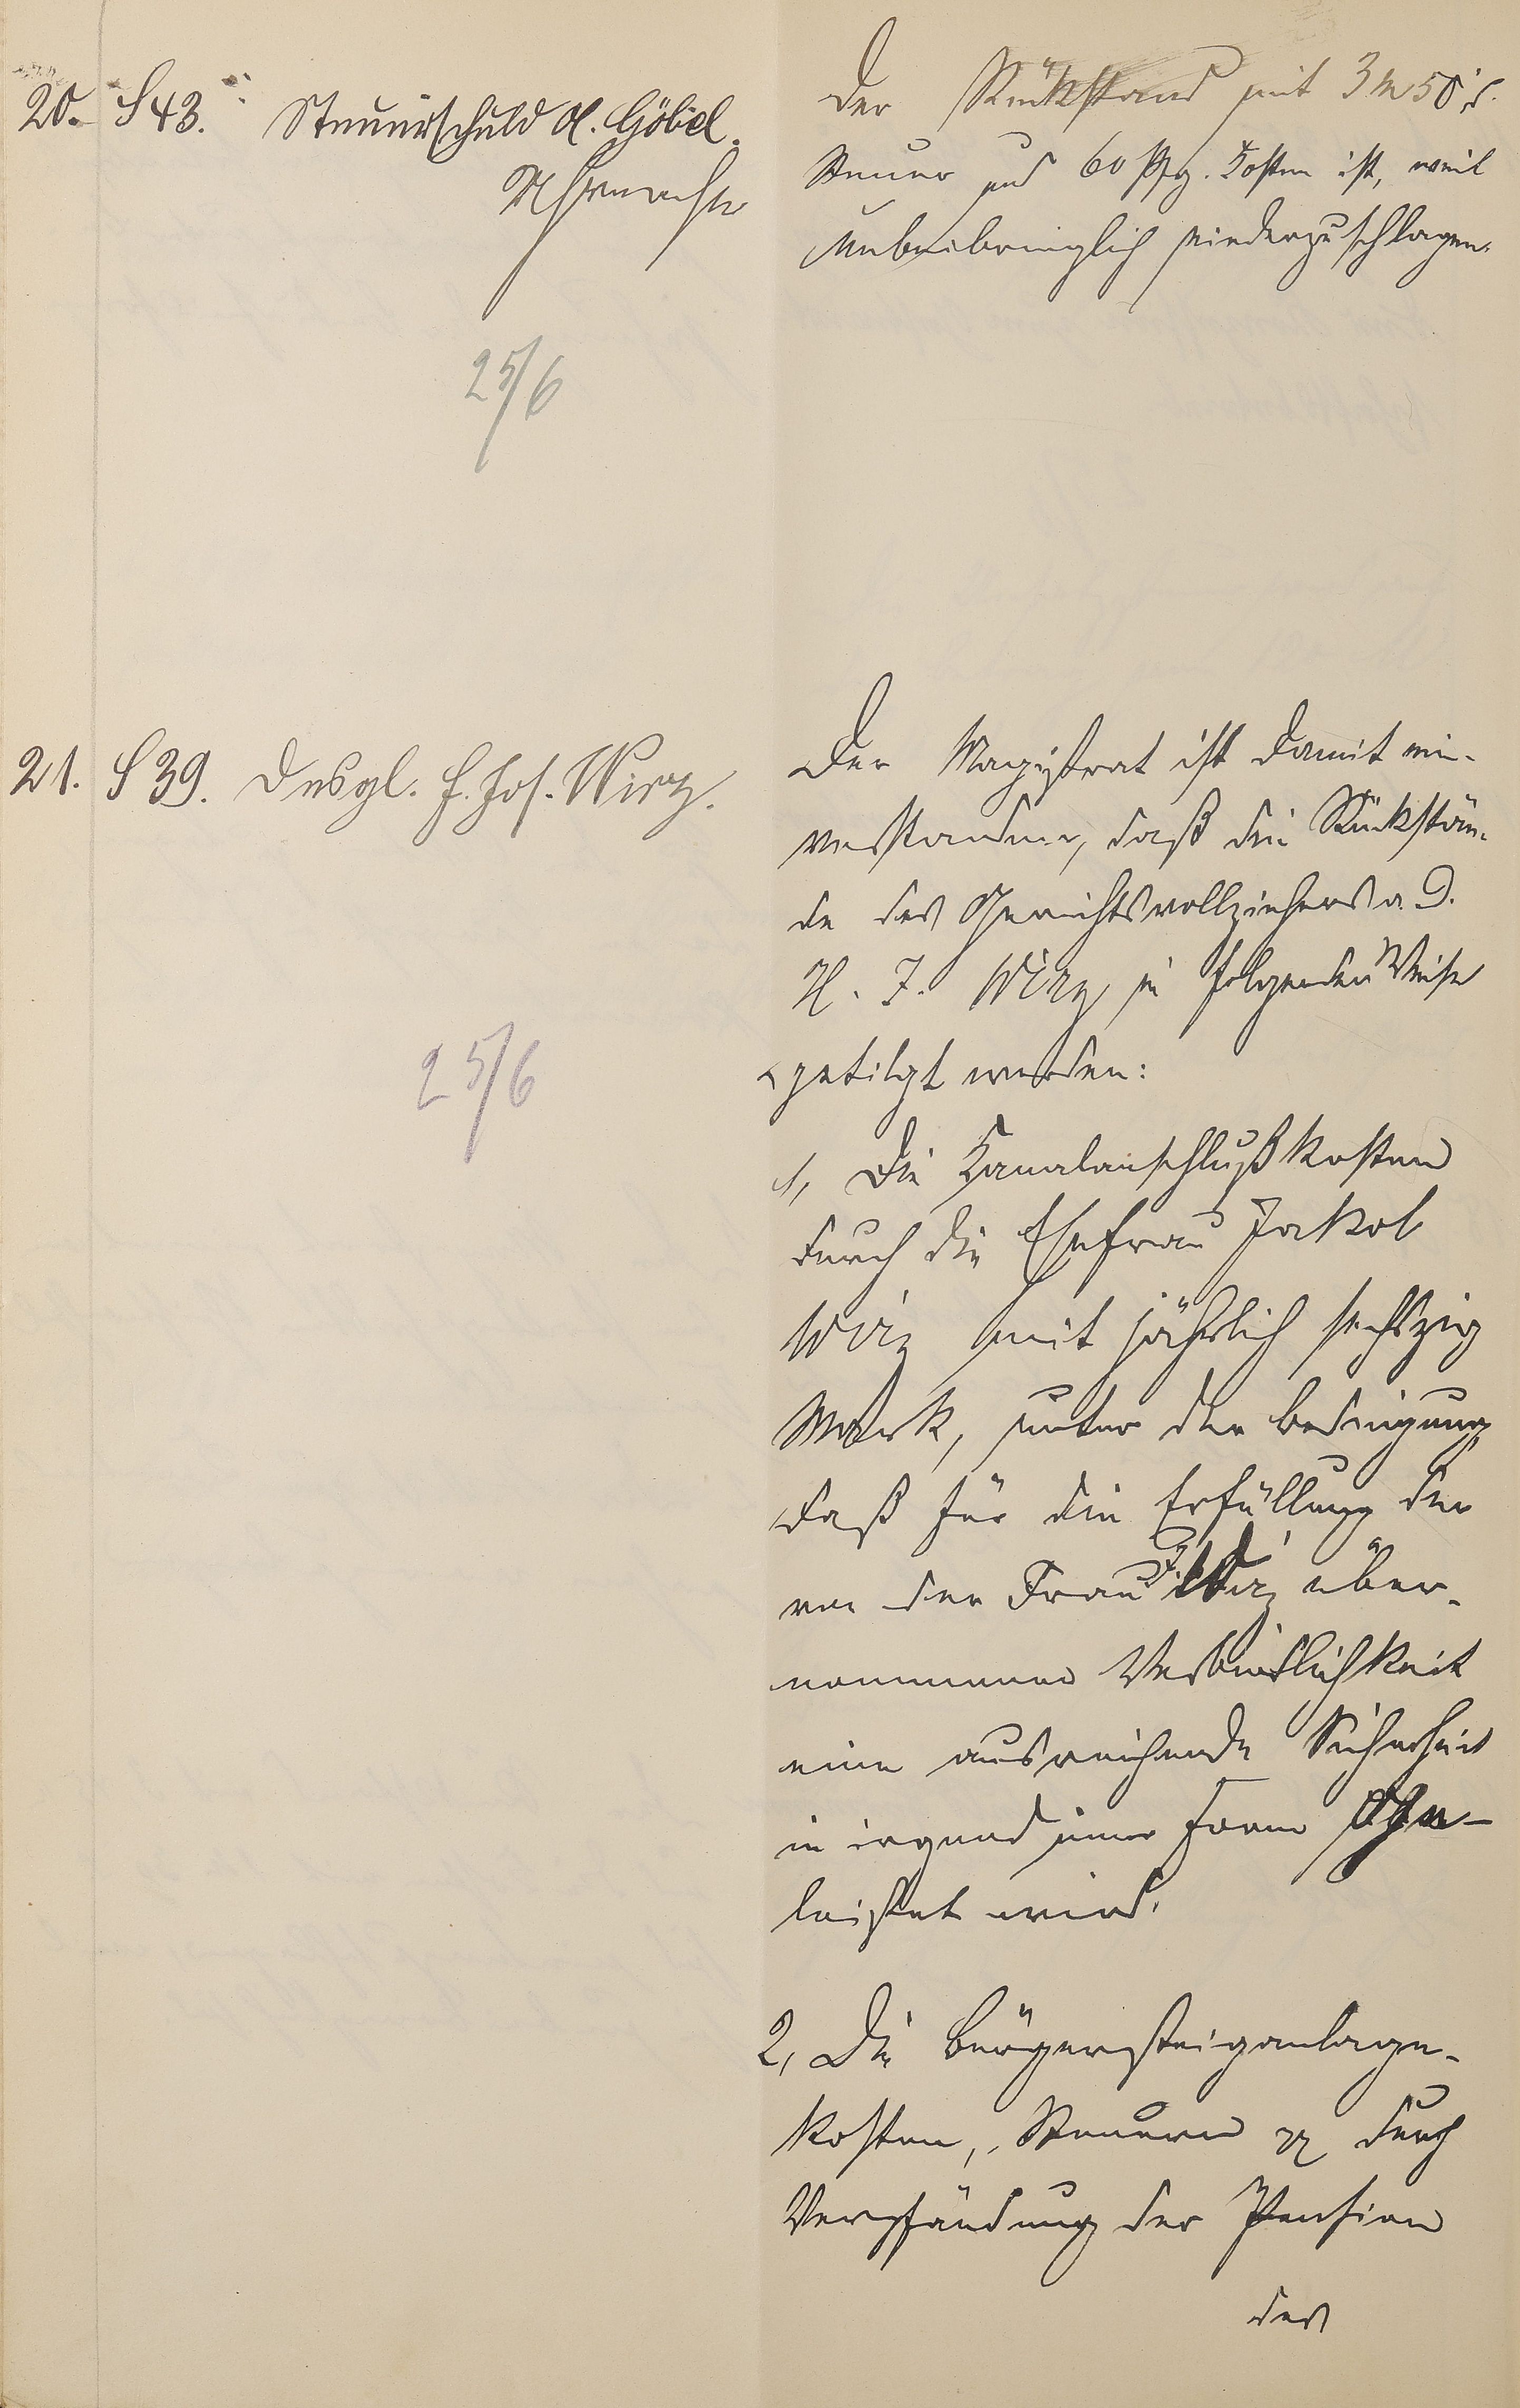 20. S 43. Steuerschuld A. Göbel.
25/6
Der Rückstand mit 3 M 50
Steuer und 60 Pfg. Kosten ist, weil
unbeibringlich niederzuschlagen.
21. S 39. Desgl. H. Jos. Wirz.
25/6
Der Magistrat ist damit ein-
verstanden, daß die Rückstän-
de des Gerichtsvollziehers a. D.
H. J. Wirz in folgender Weise
getilgt werden:
1, Die Kanalanschlußkosten
durch die Ehefrau Jakob
Wirz mit jährlich sechszig
Mark, unter der Bedingung,
daß für die Erfüllung der
von der Frau J. Wirz über-
nommenen Verbindlichkeit
eine ausreichende Sicherheit
in irgend einer Form ge-
leistet wird.
2, Die Bürgersteiganlage-
kosten, Steuern pp durch
Verpfändung der Pension
des